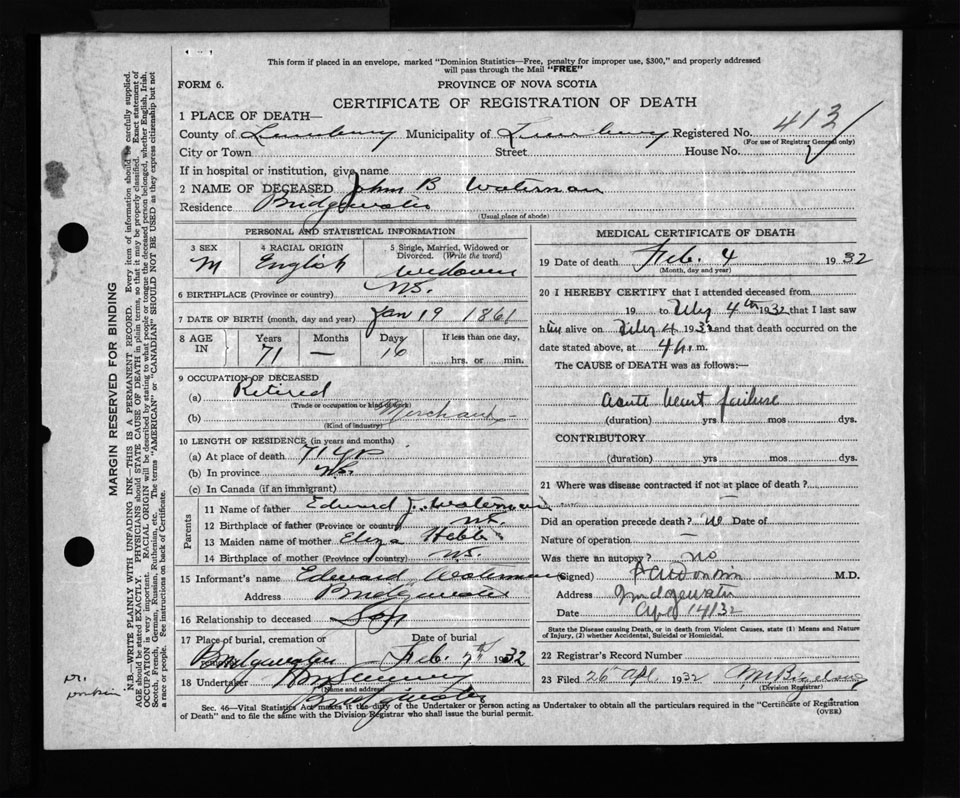 This form if placed in an envelope, marked "Dominion Statistics—Free, penalty for improper use, $300," and properly addressed
will pass through the Mail "FREE"
FORM 6.
PROVINCE OF NOVA SCOTIA
CERTIFICATE OF REGISTRATION OF DEATH
1 PLACE OF DEATH—
County of Lunenburg Municipality of Lunenburg Registered No. 413
(For use of Registrar General only)
City or Town Street House No.
If in hospital or institution, give name
2 NAME OF DECEASED John B Waterman
Residence Bridgewater
(Usual place of abode)
PERSONAL AND STATISTICAL INFORMATION
3 SEX 4 RACIAL ORIGIN 5 Single, Married, Widowed or
Divorced. (Write the word)
M English Widower
6 BIRTHPLACE (Province or country) N.S.
7 DATE OF BIRTH (month, day and year) Jan 19 1861
8 AGE IN Years Months Days If less than one day,
71 — 16 hrs. or min.
9 OCCUPATION OF DECEASED
(a) Retired
(Trade or occupation or kind of work)
(b) Merchant
(Kind of industry)
10 LENGTH OF RESIDENCE (in years and months)
(a) At place of death 71 yrs
(b) In province N.S.
(c) In Canada (if an immigrant)
Parents
11 Name of father Edward J. Waterman
12 Birthplace of father (Province or country) N.S.
13 Maiden name of mother Eliza Hebb
14 Birthplace of mother (Province or country) N.S.
15 Informant's name Edward Waterman
Address Bridgewater
16 Relationship to deceased Son
17 Place of burial, cremation or Date of burial
Bridgewater Feb. 7th 1932
18 Undertaker
(Name and address)
Bridgewater
MEDICAL CERTIFICATE OF DEATH
19 Date of death Feb. 4 1932
(Month, day and year)
20 I HEREBY CERTIFY that I attended deceased from
19 to Feby 4th 1932 that I last saw
him alive on Feby 4 1932 and that death occurred on
the date stated above, at 4 m.
The CAUSE OF DEATH was as follows:—
acute heart failure
(duration) yrs mos dys.
CONTRIBUTORY
(duration) yrs mos dys.
21 Where was disease contracted if not at place of death? —
Did an operation precede death? no Date of
Nature of operation —
Was there an autopsy? no
(Signed) M.D.
Address Bridgewater
Date Apl 14/32
State the Disease causing Death, or in death from Violent Causes, state (1) Means and Nature
of Injury, (2) whether Accidental, Suicidal or Homicidal.
22 Registrar's Record Number
23 Filed 26 Apl. 1932
(Division Registrar)
Sec. 46—Vital Statistics Act makes it the duty of the Undertaker or person acting as Undertaker to obtain all the particulars required in the "Certificate of Registration
of Death" and to file the same with the Division Registrar who shall issue the burial permit.
(OVER)
MARGIN RESERVED FOR BINDING
N.B.—WRITE PLAINLY WITH UNFADING INK—THIS IS A PERMANENT RECORD. Every item of information should be carefully supplied.
AGE should be stated EXACTLY. PHYSICIANS should STATE CAUSE OF DEATH in plain terms, so that it may be properly classified. Exact statement of
OCCUPATION is very important. RACIAL ORIGIN will be described by stating to what people or tongue the deceased person belonged, whether English, Irish,
Scotch, French, German, Russian, Ruthenian, etc. The terms "AMERICAN" or "CANADIAN" SHOULD NOT BE USED as they express citizenship but not
a race or people. See instructions on back of Certificate.